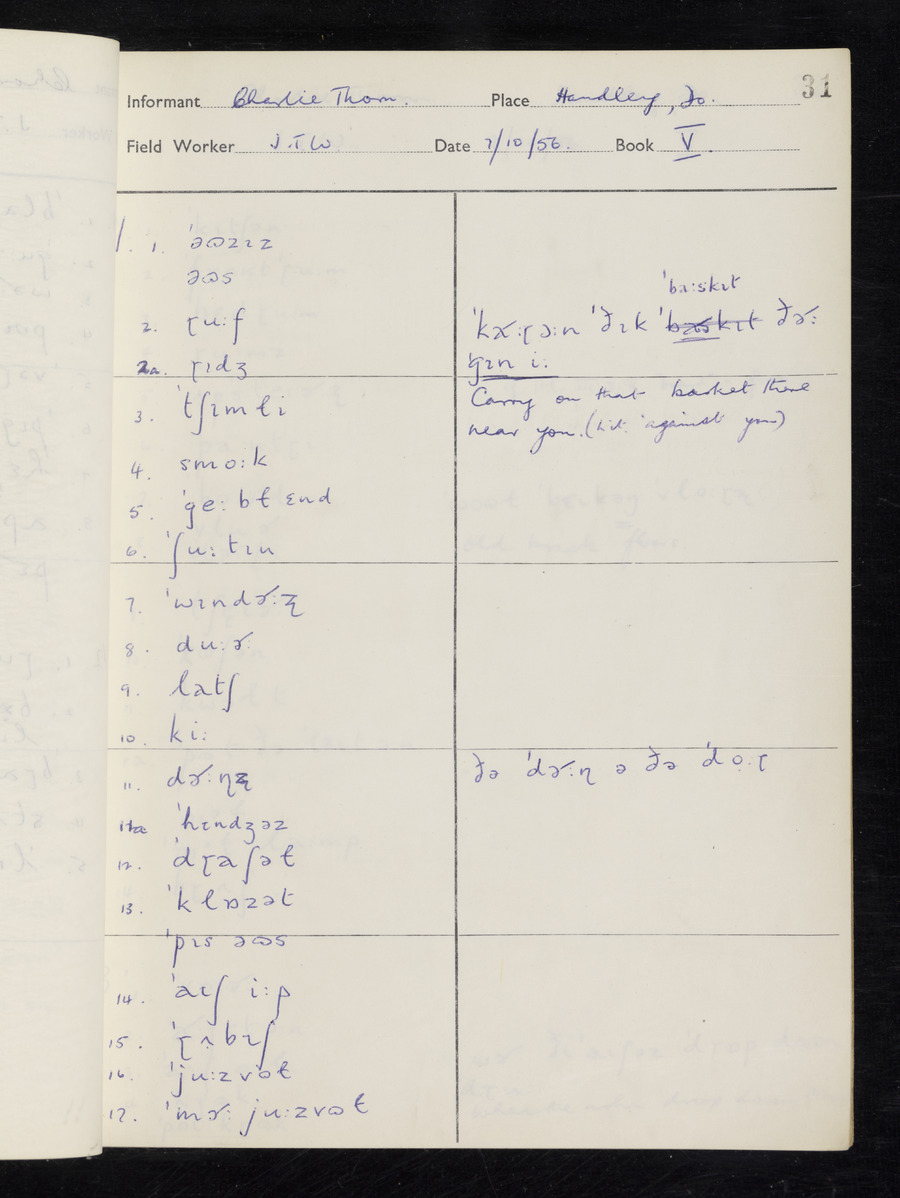 31
Informant Charlie Thorn. Place Handley, Do.
Field Worker J.T.W Date 7/10/56. Book V.
1. 1. ˈəʊzɪz
əʊs
2. ɽuːf
2a. ɽɪdʒ
3. ˈtʃɪmɫi
4. smoːk
5. ˈgeːbɫ ɛnd
6. ˈʃuːtɪn
7. ˈwɪndɚːʐ
8. duːɚ
9. latʃ
10. kiː
11. dɚːɳʐ
11a ˈhɪndʒəz
12. ˈdɽaʃəɫ
13. ˈklɒzət
ˈpɪs əʊs
14. ˈaɪʃ iːp
15. ˈɽʌbɪʃ
16. ˈjuːzvʊɫ
17. ˈmɚː juːzvʊɫ
ˈbaːskɪt
ðɚː
ˈgɪn iː
Carry on that basket there
near you. (lit. against you)
ðə ˈdɚːɳ ə ðə ˈdo̞ːɽ